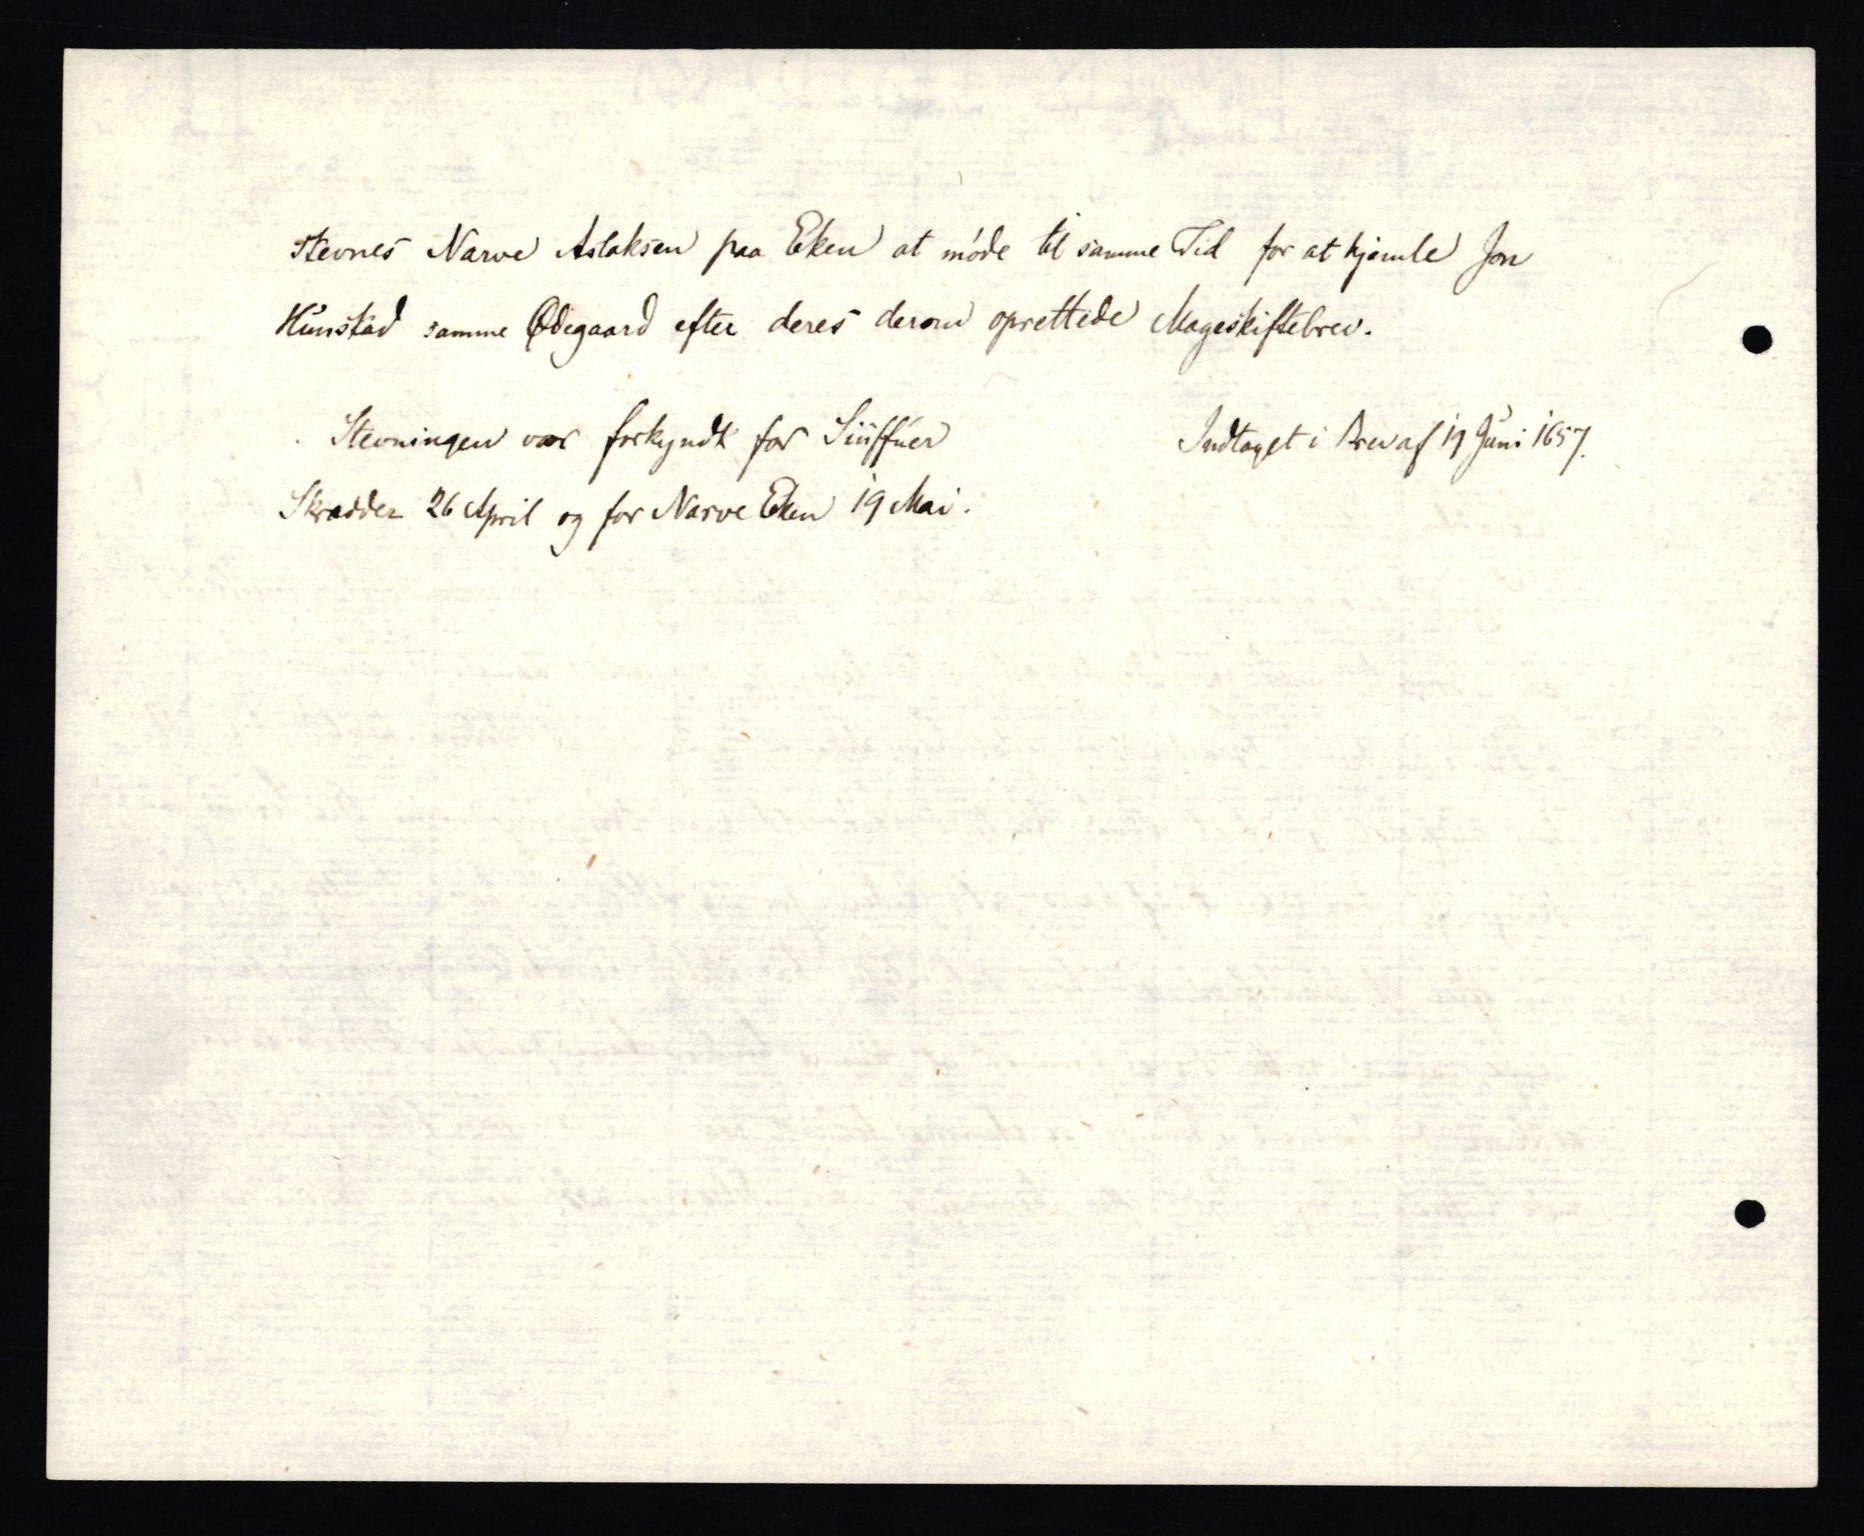 stevnes Narve Aslaksen paa Eken at møde til samme Tid for at hjemle Jon
Hunstad samme Ødegaard efter deres derom oprettede Mageskiftebrev.
Stevningen var forkyndt for Siüffuer
Skrædder 26 April og for Narve Eken 19 Mai.
Indtaget i Brev af 19 Juni 1657.